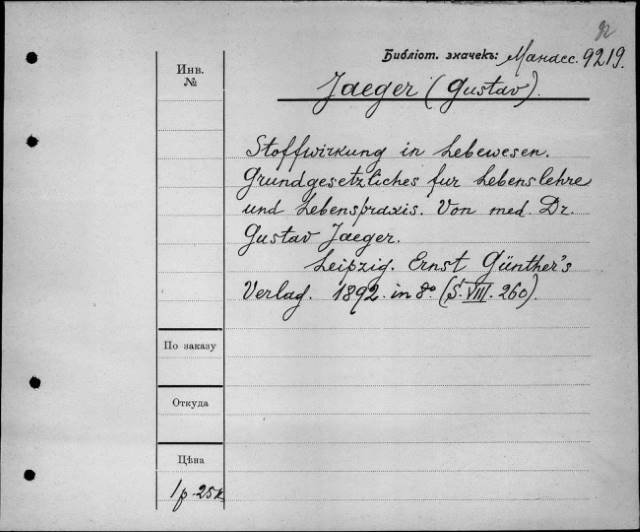 92
Библіот. значекъ: Манасс. 9219.
Инв.
№
Jaeger (Gustav).
Stoffwirkung in Lebewesen.
Grundgesetzliches fur Lebenslehre
und Lebenspraxis. Von med. Dr.
Gustav Jaeger.
Leipzig. Ernst Günther's
Verlag. 1892. in 8° (S. VIII. 260).
По заказу
Откуда
Цѣна
1 р. 25 к